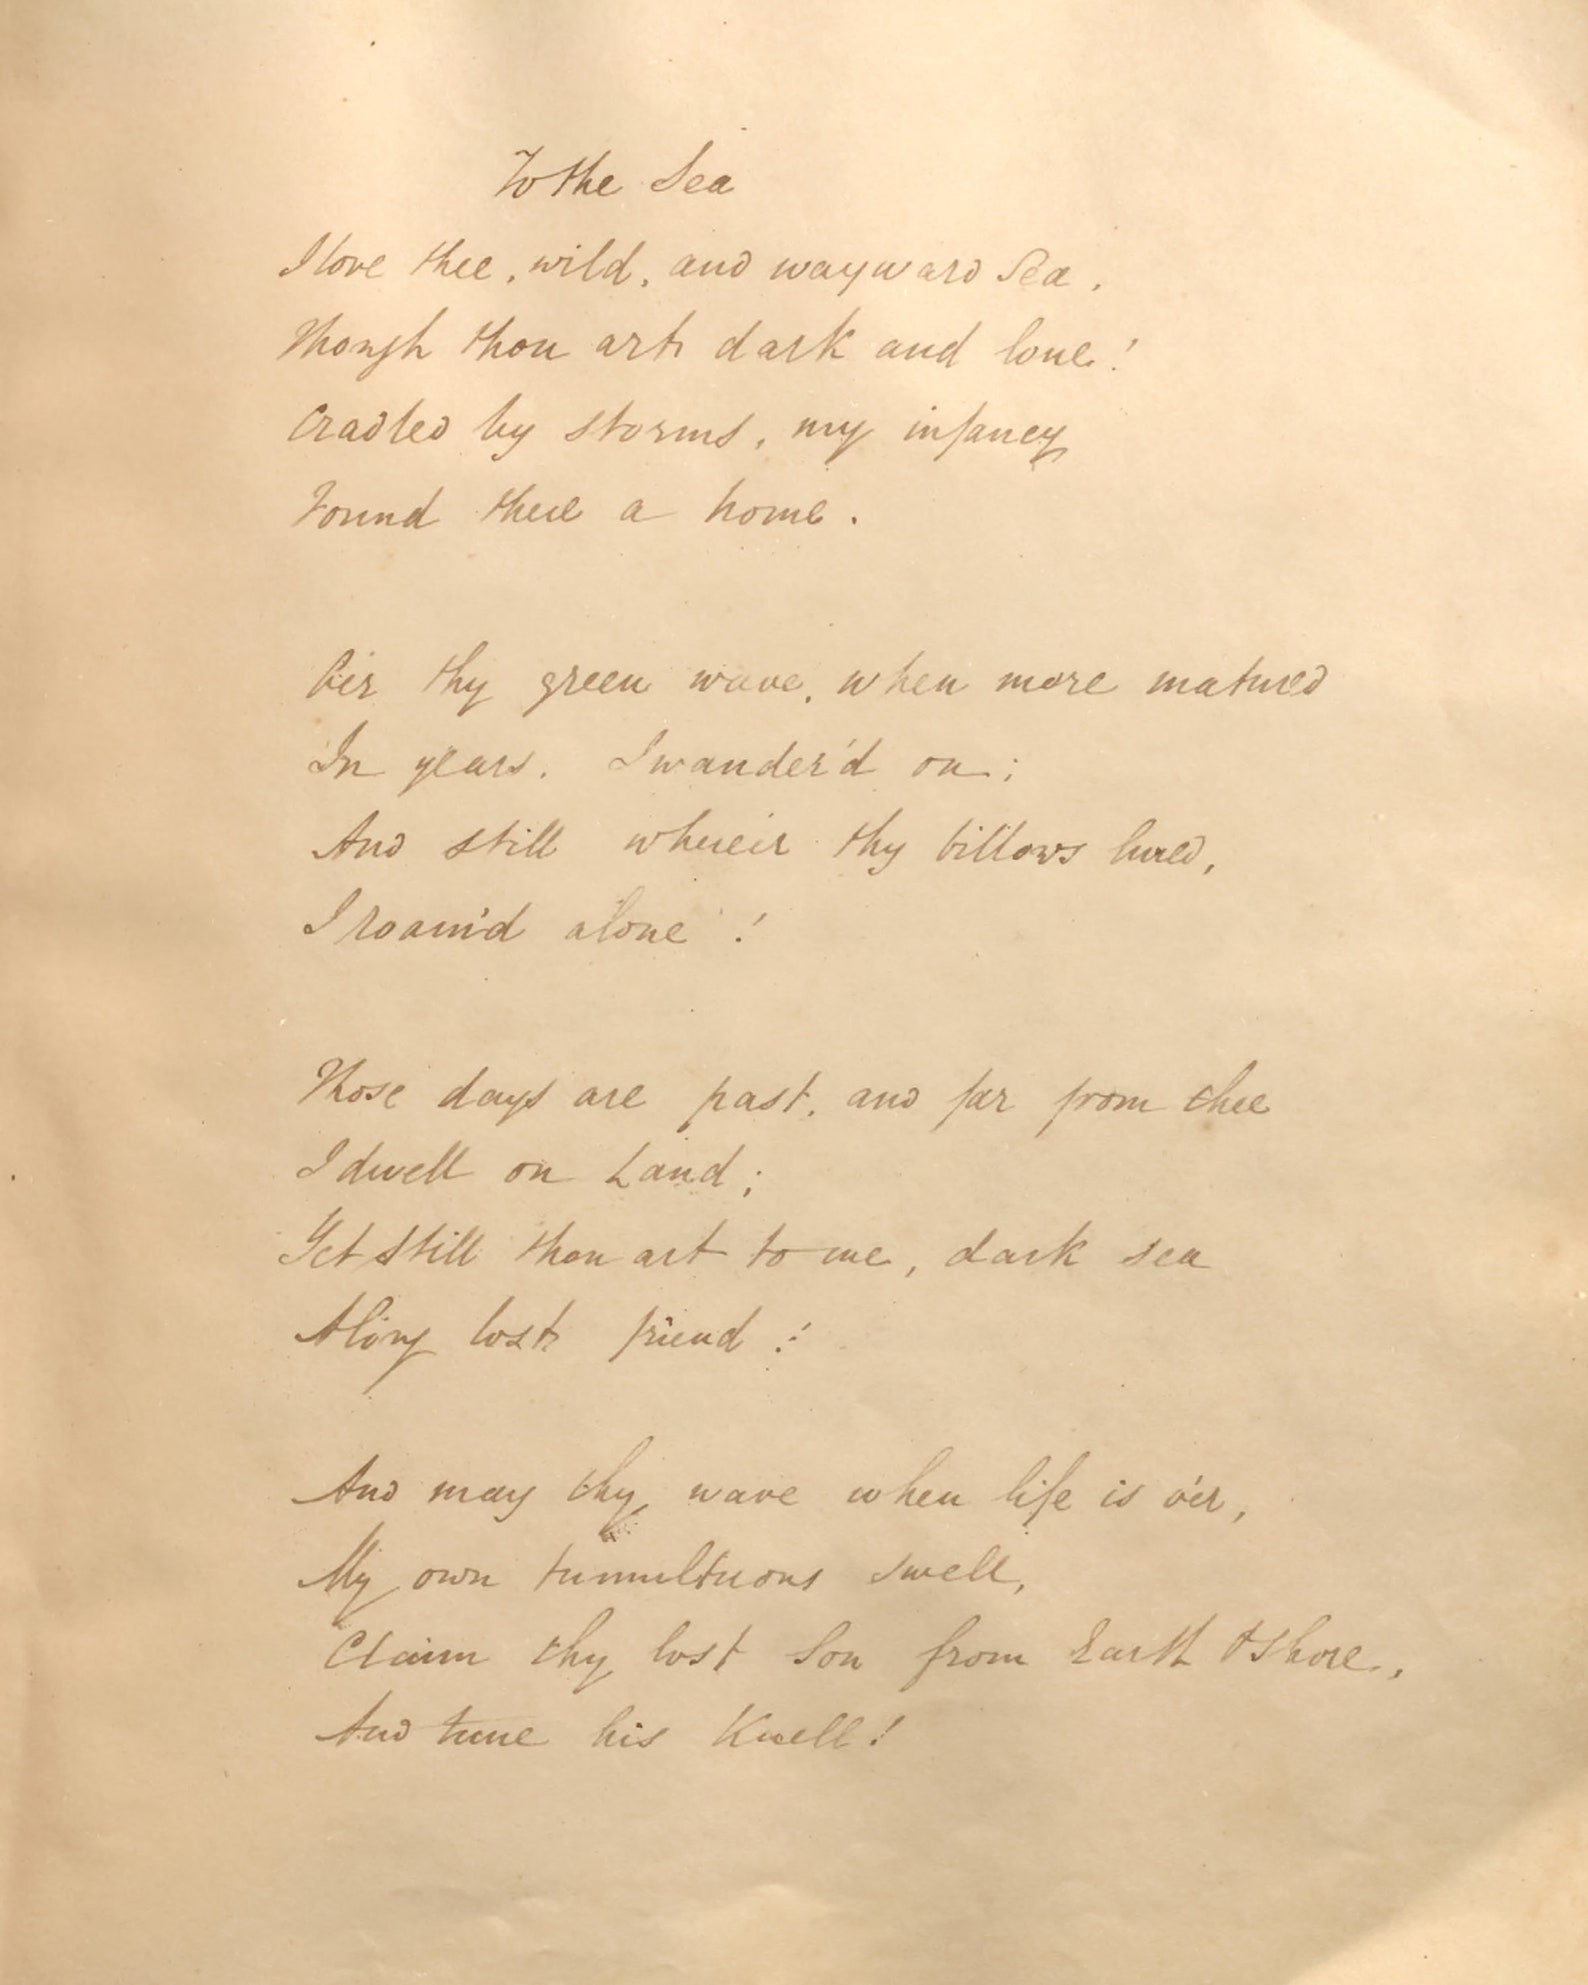 To the Sea
I love thee, wild, and wayward Sea,
Though thou art dark and lone!
Cradled by storms, my infancy
Found there a home.
O'er thy green wave, when more matured
In years, I wander'd on;
And still where'er thy billows lured,
I roam'd alone!
Those days are past, and far from thee
I dwell on Land;
Yet still thou art to me, dark sea
A long lost friend!
And may thy wave when life is o'er,
My own tumultuous swell,
Claim thy lost Son from Earth & Shore,
And tune his Knell!